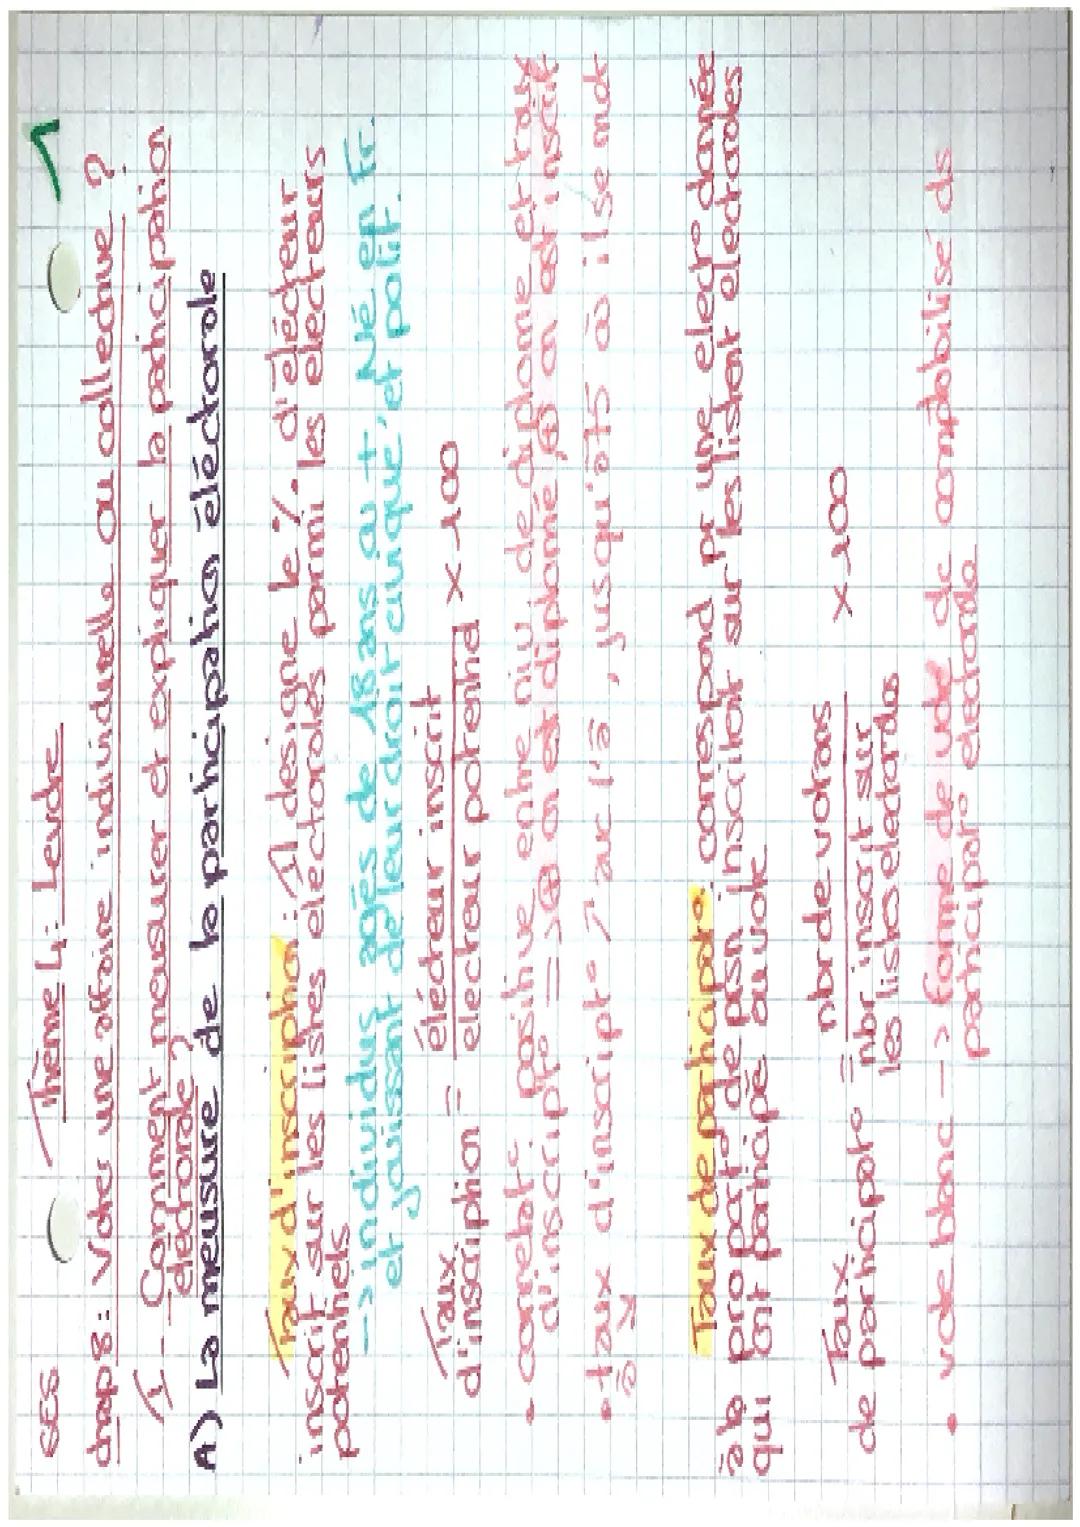 SES Thème 4: Le vote
chap8: Voter une affaire individuelle ou collective ?
I - Comment mesurer et expliquer la participation
électorale ?
A) La meusure de la participation éléctorale
Taux d'inscription: Il désigne le % d'élécteur
inscrit sur les listes électorales parmi les electeurs
potentiels
-> individus agés de 18 ans ou + Né en Fr.
et jouissant de leur droit civique et polit.
Taux d'inscription = élécteur inscrit x 100
electeur potentiel
• corrélat° positive entre niv de diplome et taux
d'inscript° => ⊕ on est diplomé ⊕ on est inscrit
• taux d'inscript° ↗ avec l'â, jusqu'à 75 où il se mdt
à ↘
Taux de participat°: correspond pr une elect° donnée
à la proport° de psn inscrites sur les listent electorales
qui ont participé au vote
Taux de participat° = nbr de votaos x 100
nbr inscrit sur
les listes electorales
• vote blanc -> forme de vote comptabilisé ds
participat° electorale